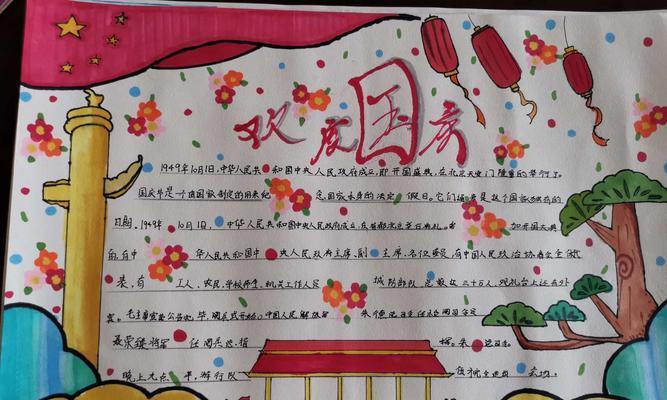 欢度国庆
1949年10月1日,中华人民共和国中央人民政府成立,即开国盛典,在北京天安门隆重的举行了。
国庆节是一个由国家制定的用来纪念国家本身的法定假日。它们通常是这个国家独有的
日期。1949年10月1日,中华人民共和国中央人民政府成立,在首都北京举行典礼。开国大典
的有中华人民共和国中央人民政府主席、副主席、各位委员,有中国人民政治协商会全体代
表,有工人、农民、学校师生、机关工作人员城防部队总数达三十万人,观礼台上还有外
宾。毛主席宣读公告完毕,阅兵式开始,中国人民解放军朱德总司令任
聂荣臻将军任阅兵总指挥。朱总司令
晚上九点半,游行队